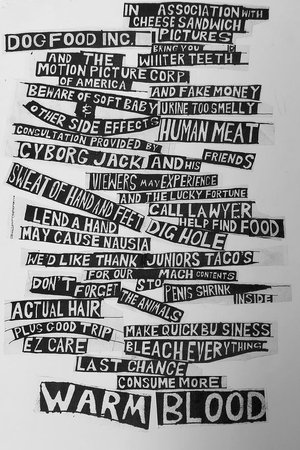 IN ASSOCIATION WITH
CHEESE SANDWICH
PICTURES
DOG FOOD INC.
BRING YOU
AND THE WHIITER TEETH
MOTION PICTURE CORP.
OF AMERICA
BEWARE OF SOFT BABY AND FAKE MONEY
& URINE TOO SMELLY
OTHER SIDE EFFECTS
HUMAN MEAT
CONSULTATION PROVIDED BY
CYBORG JACK AND HIS FRIENDS
VIEWERS MAY EXPERIENCE
SWEAT OF HAND AND FEET
AND THE LUCKY FORTUNE
CALL LAWYER
LEND A HAND
DIG HOLE
HELP FIND FOOD
MAY CAUSE NAUSIA
WE'D LIKE THANK JUNIORS TACO'S
FOR OUR MACH CONTENTS
DON'T FORGET STO
THE ANIMALS
PENIS SHRINK
INSIDE
ACTUAL HAIR
PLUS GOOD TRIP
MAKE QUICK BUSINESS
EZ CARE
BLEACH EVERYTHING
LAST CHANCE
CONSUME MORE
WARM BLOOD